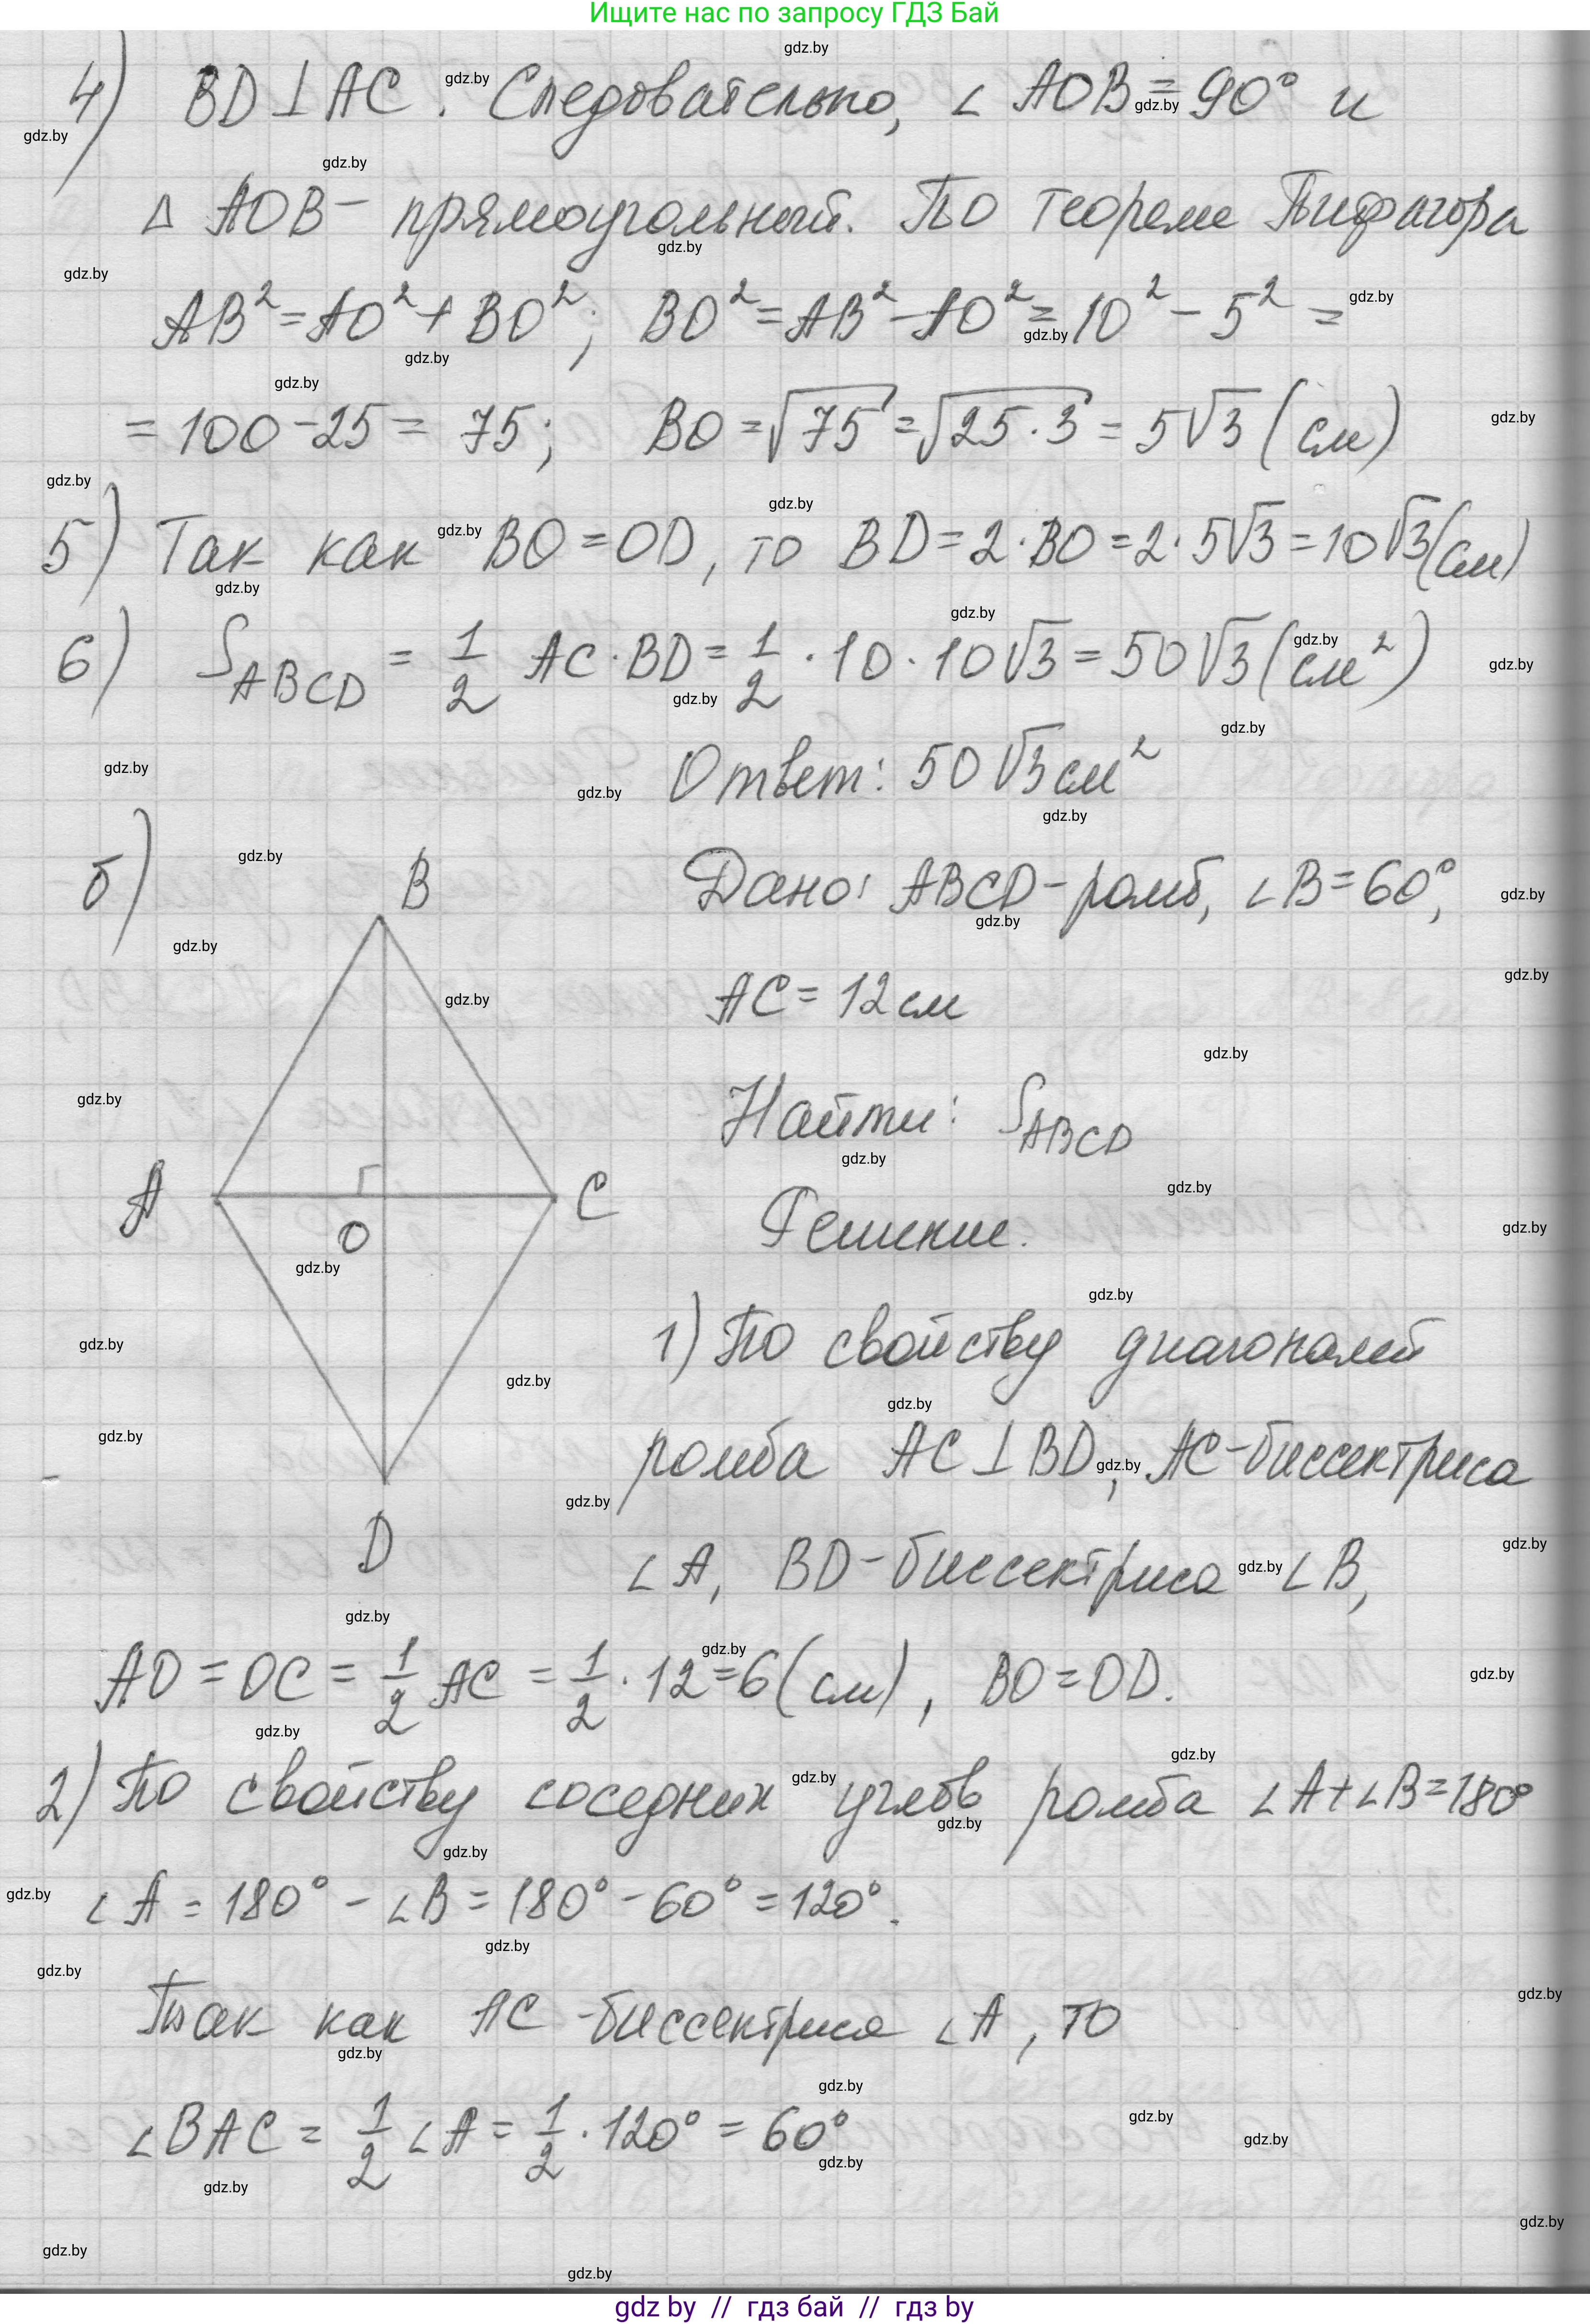 Ищите нас по запросу ГДЗ Бай
4) BD⊥AC. Следовательно, ∠AOB = 90° и
△ AOB – прямоугольный. По теореме Пифагора
AB² = AO² + BO²; BO² = AB² – AO² = 10² – 5² =
= 100 – 25 = 75; BO = √75 = √25·3 = 5√3 (см)
5) Так как BO = OD, то BD = 2·BO = 2·5√3 = 10√3 (см)
6) S_ABCD = 1/2 AC·BD = 1/2 · 10 · 10√3 = 50√3 (см²)
Ответ: 50√3 см²
б)
B
A
O
C
D
Дано: ABCD – ромб, ∠B = 60°,
AC = 12 см
Найти: S_ABCD
Решение.
1) По свойству диагоналей
ромба AC⊥BD, AC – биссектриса
∠A, BD – биссектриса ∠B,
AO = OC = 1/2 AC = 1/2 · 12 = 6 (см), BO = OD.
2) По свойству соседних углов ромба ∠A + ∠B = 180°
∠A = 180° – ∠B = 180° – 60° = 120°.
Так как AC – биссектриса ∠A, то
∠BAC = 1/2 ∠A = 1/2 · 120° = 60°
gdz by // гдз бай // гдз by